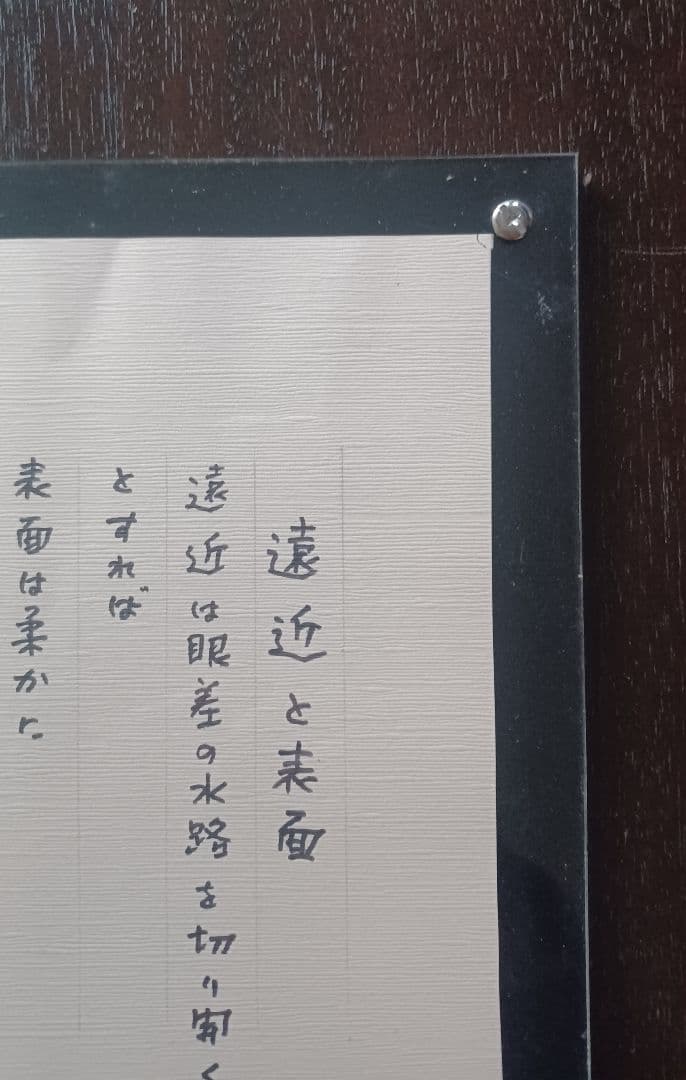 遠近と表面
遠近は眼差の水路を切り開く
とすれば
表面は柔かに